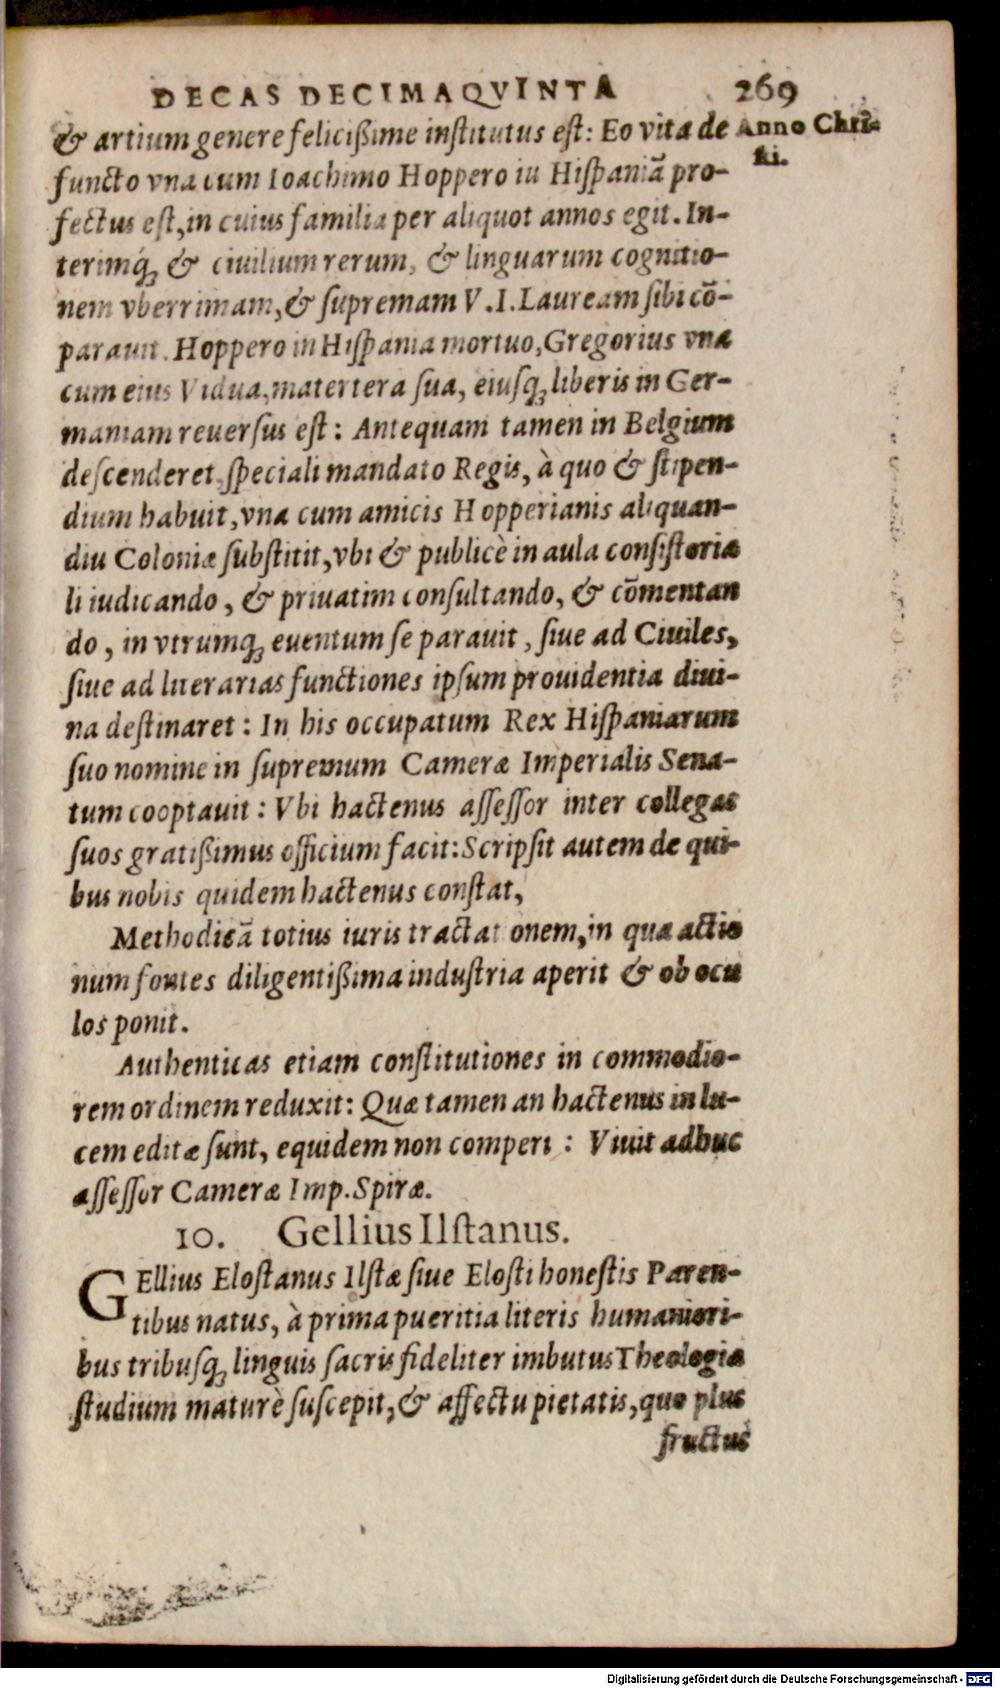 DECAS DECIMAQVINTA 269
& artium genere felicißime institutus est: Eo vita de Anno Chri-
sti.
functo vna cum Ioachimo Hoppero in Hispaniā pro-
fectus est, in cuius familia per aliquot annos egit. In-
terimq́ꝫ & ciuilium rerum, & linguarum cognitio-
nem vberrimam, & supremam V. I. Lauream sibi cō-
parauit. Hoppero in Hispania mortuo, Gregorius vna
cum eius Vidua, matertera sua, eiusqꝫ liberis in Ger-
maniam reuersus est: Antequam tamen in Belgium
descenderet speciali mandato Regis, à quo & stipen-
dium habuit, vna cum amicis Hopperianis aliquan-
diu Coloniæ substitit, vbi & publicè in aula consistoria
li iudicando, & priuatim consultando, & cōmentan
do, in vtrumqꝫ euentum se parauit, siue ad Ciuiles,
siue ad literarias functiones ipsum prouidentia diui-
na destinaret: In his occupatum Rex Hispaniarum
suo nomine in supremum Cameræ Imperialis Sena-
tum cooptauit: Vbi hactenus assessor inter collegas
suos gratißimus officium facit: Scripsit autem de qui-
bus nobis quidem hactenus constat,
Methodicā totius iuris tractat onem, in qua actio
num fontes diligentißima industria aperit & ob ocu
los ponit.
Authenticas etiam constitutiones in commodio-
rem ordinem reduxit: Quæ tamen an hactenus in lu-
cem editæ sunt, equidem non comperi: Viuit adhuc
assessor Cameræ Imp. Spiræ.
10. Gellius Ilstanus.
GEllius Elostanus Ilstæ siue Elosti honestis Paren-
tibus natus, à prima pueritia literis humaniori-
bus tribusqꝫ linguis sacris fideliter imbutus Theologiæ
studium maturè suscepit, & affectu pietatis, quo plus
fructus
Digitalisierung gefördert durch die Deutsche Forschungsgemeinschaft - DFG